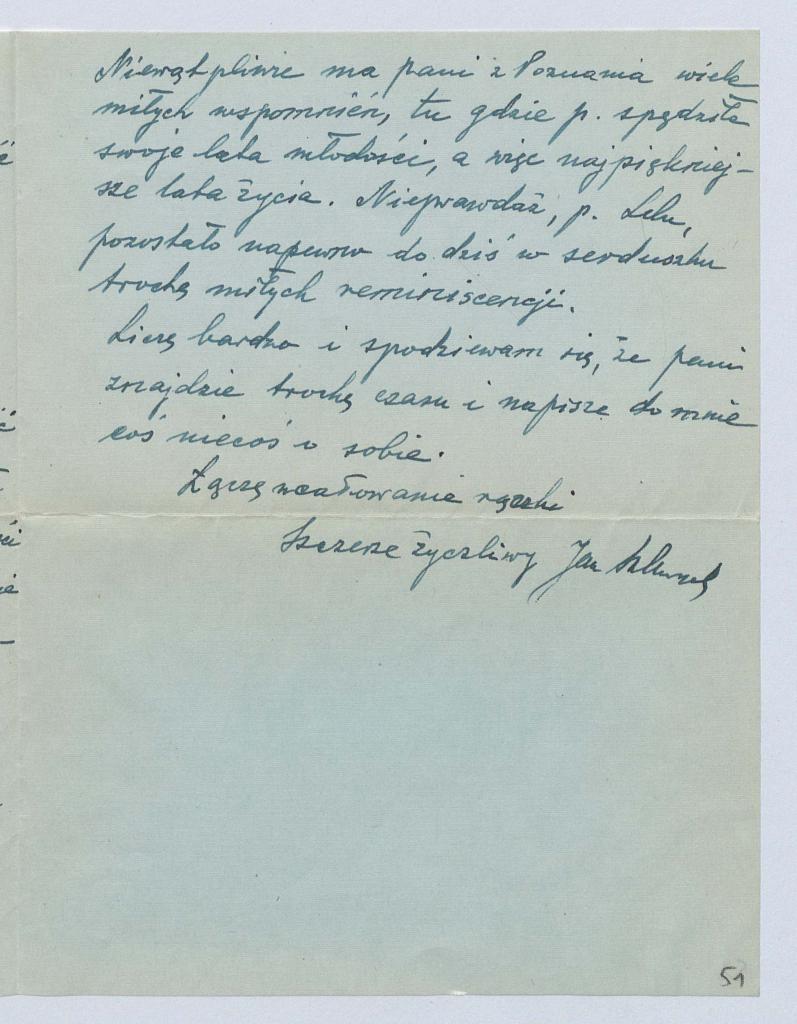 Niewątpliwie ma pani z Poznania wiele
miłych wspomnień, tu gdzie p. spędziła
swoje lata młodości, a więc najpiękniej-
sze lata życia. Nieprawdaż, p. Lelu,
pozostało napewno do dziś w serduszku
trochę miłych reminiscencji.
Liczę bardzo i spodziewam się, że pani
znajdzie trochę czasu i napisze do mnie
coś niecoś o sobie.
Łączę ucałowanie rączki
Szczerze życzliwy Jan
51